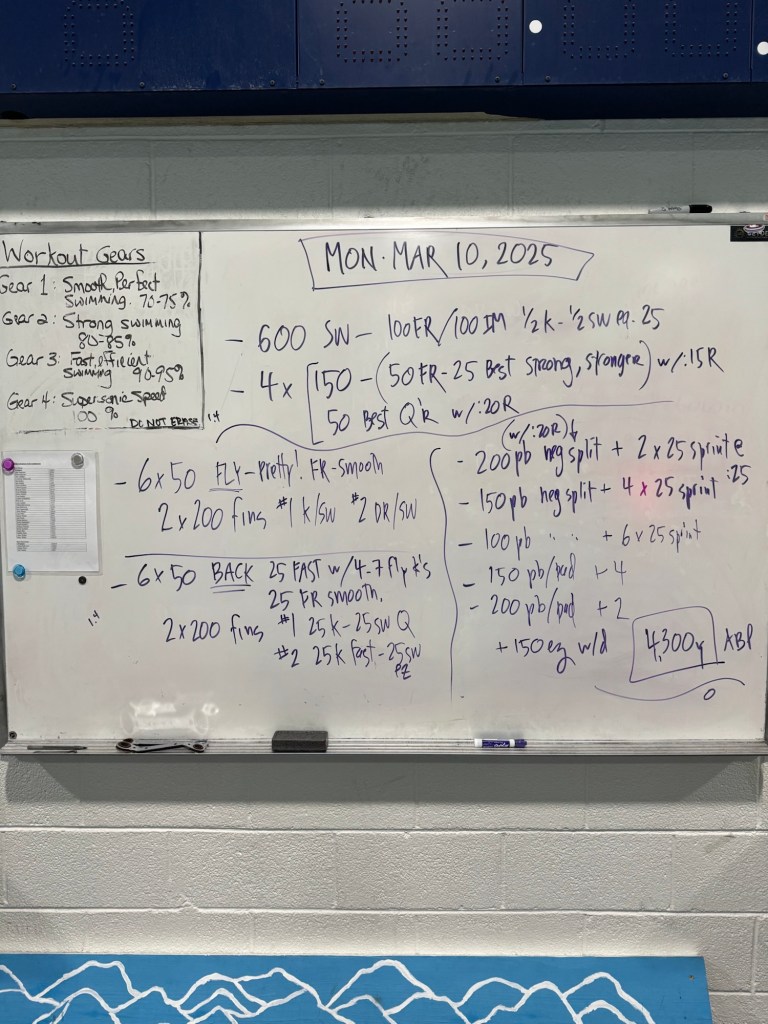 Workout Gears
Gear 1: Smooth, Perfect
swimming. 70-75%
Gear 2: Strong swimming
80-85%
Gear 3: Fast, efficient
swimming 90-95%
Gear 4: Supersonic Speed
100 %
DO NOT ERASE
MON. MAR 10, 2025
- 600 SW - 100FR/100 IM ½ k - ½ sw ea. 25
- 4x [150 - (50 FR - 25 Best strong, stronger) w/:15R
50 Best Q'r w/:20R
- 6x50 FLY - Pretty! FR-smooth
2x200 fins #1 k/sw #2 DR/SW
- 6x50 BACK 25 FAST w/4-7 fly k's
25 FR smooth.
2x200 fins #1 25k-25sw Q
#2 25k Fast-25sw
PZ
(w/:20R)↓
- 200 pb neg split + 2 x 25 sprint @
:25
- 150 pb neg split + 4 x 25 sprint
- 100 pb " " + 6 x 25 sprint
- 150 pb/pad + 4
- 200 pb/pad + 2
+ 150 ez w/d
4,300y ABP